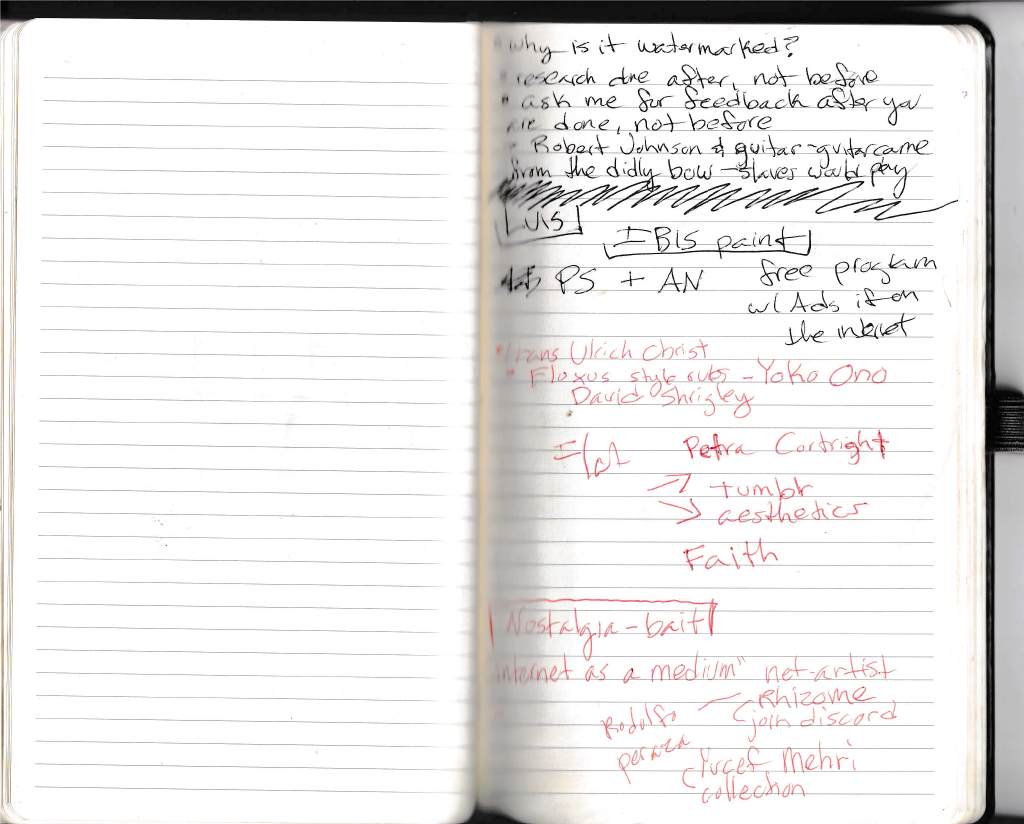 " why is it watermarked?
" research done after, not before
" ask me for feedback after you
are done, not before
" Robert Johnson & guitar - guitar came
from the didly bow - slaves would play
LUIS
IBIS paint
PS + AN
free program
w/ Ads if on
the internet
" Hans Ulrich Christ
" Floxus style rubs - Yoko Ono
David Shrigley
Petra Cortright
tumblr
aesthetics
Faith
Nostalgia-bait
internet as a medium" net-artist
Rhizome
(join discord
Rodolfo
peraza
(Yucef Mehri
collection